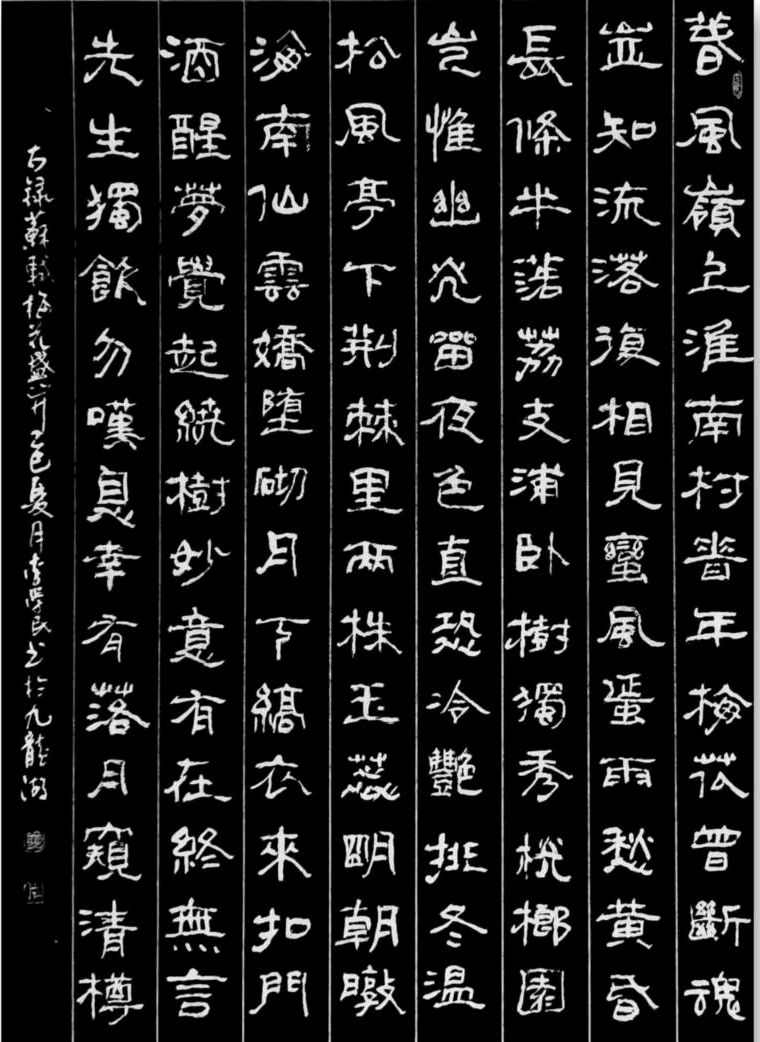 春風嶺上淮南村昔年梅花曾斷魂
豈知流落復相見蠻風蜑雨愁黃昏
長條半落荔支浦臥樹獨秀桄榔園
豈惟幽光留夜色直恐冷艷排冬溫
松風亭下荆棘里兩株玉蕊明朝暾
海南仙雲嬌墮砌月下縞衣來扣門
酒醒夢覺起繞樹妙意有在終無言
先生獨飲勿嘆息幸有落月窺清樽
右録蘇軾梅花盛開乙巳夏月李學民書於九龍湖